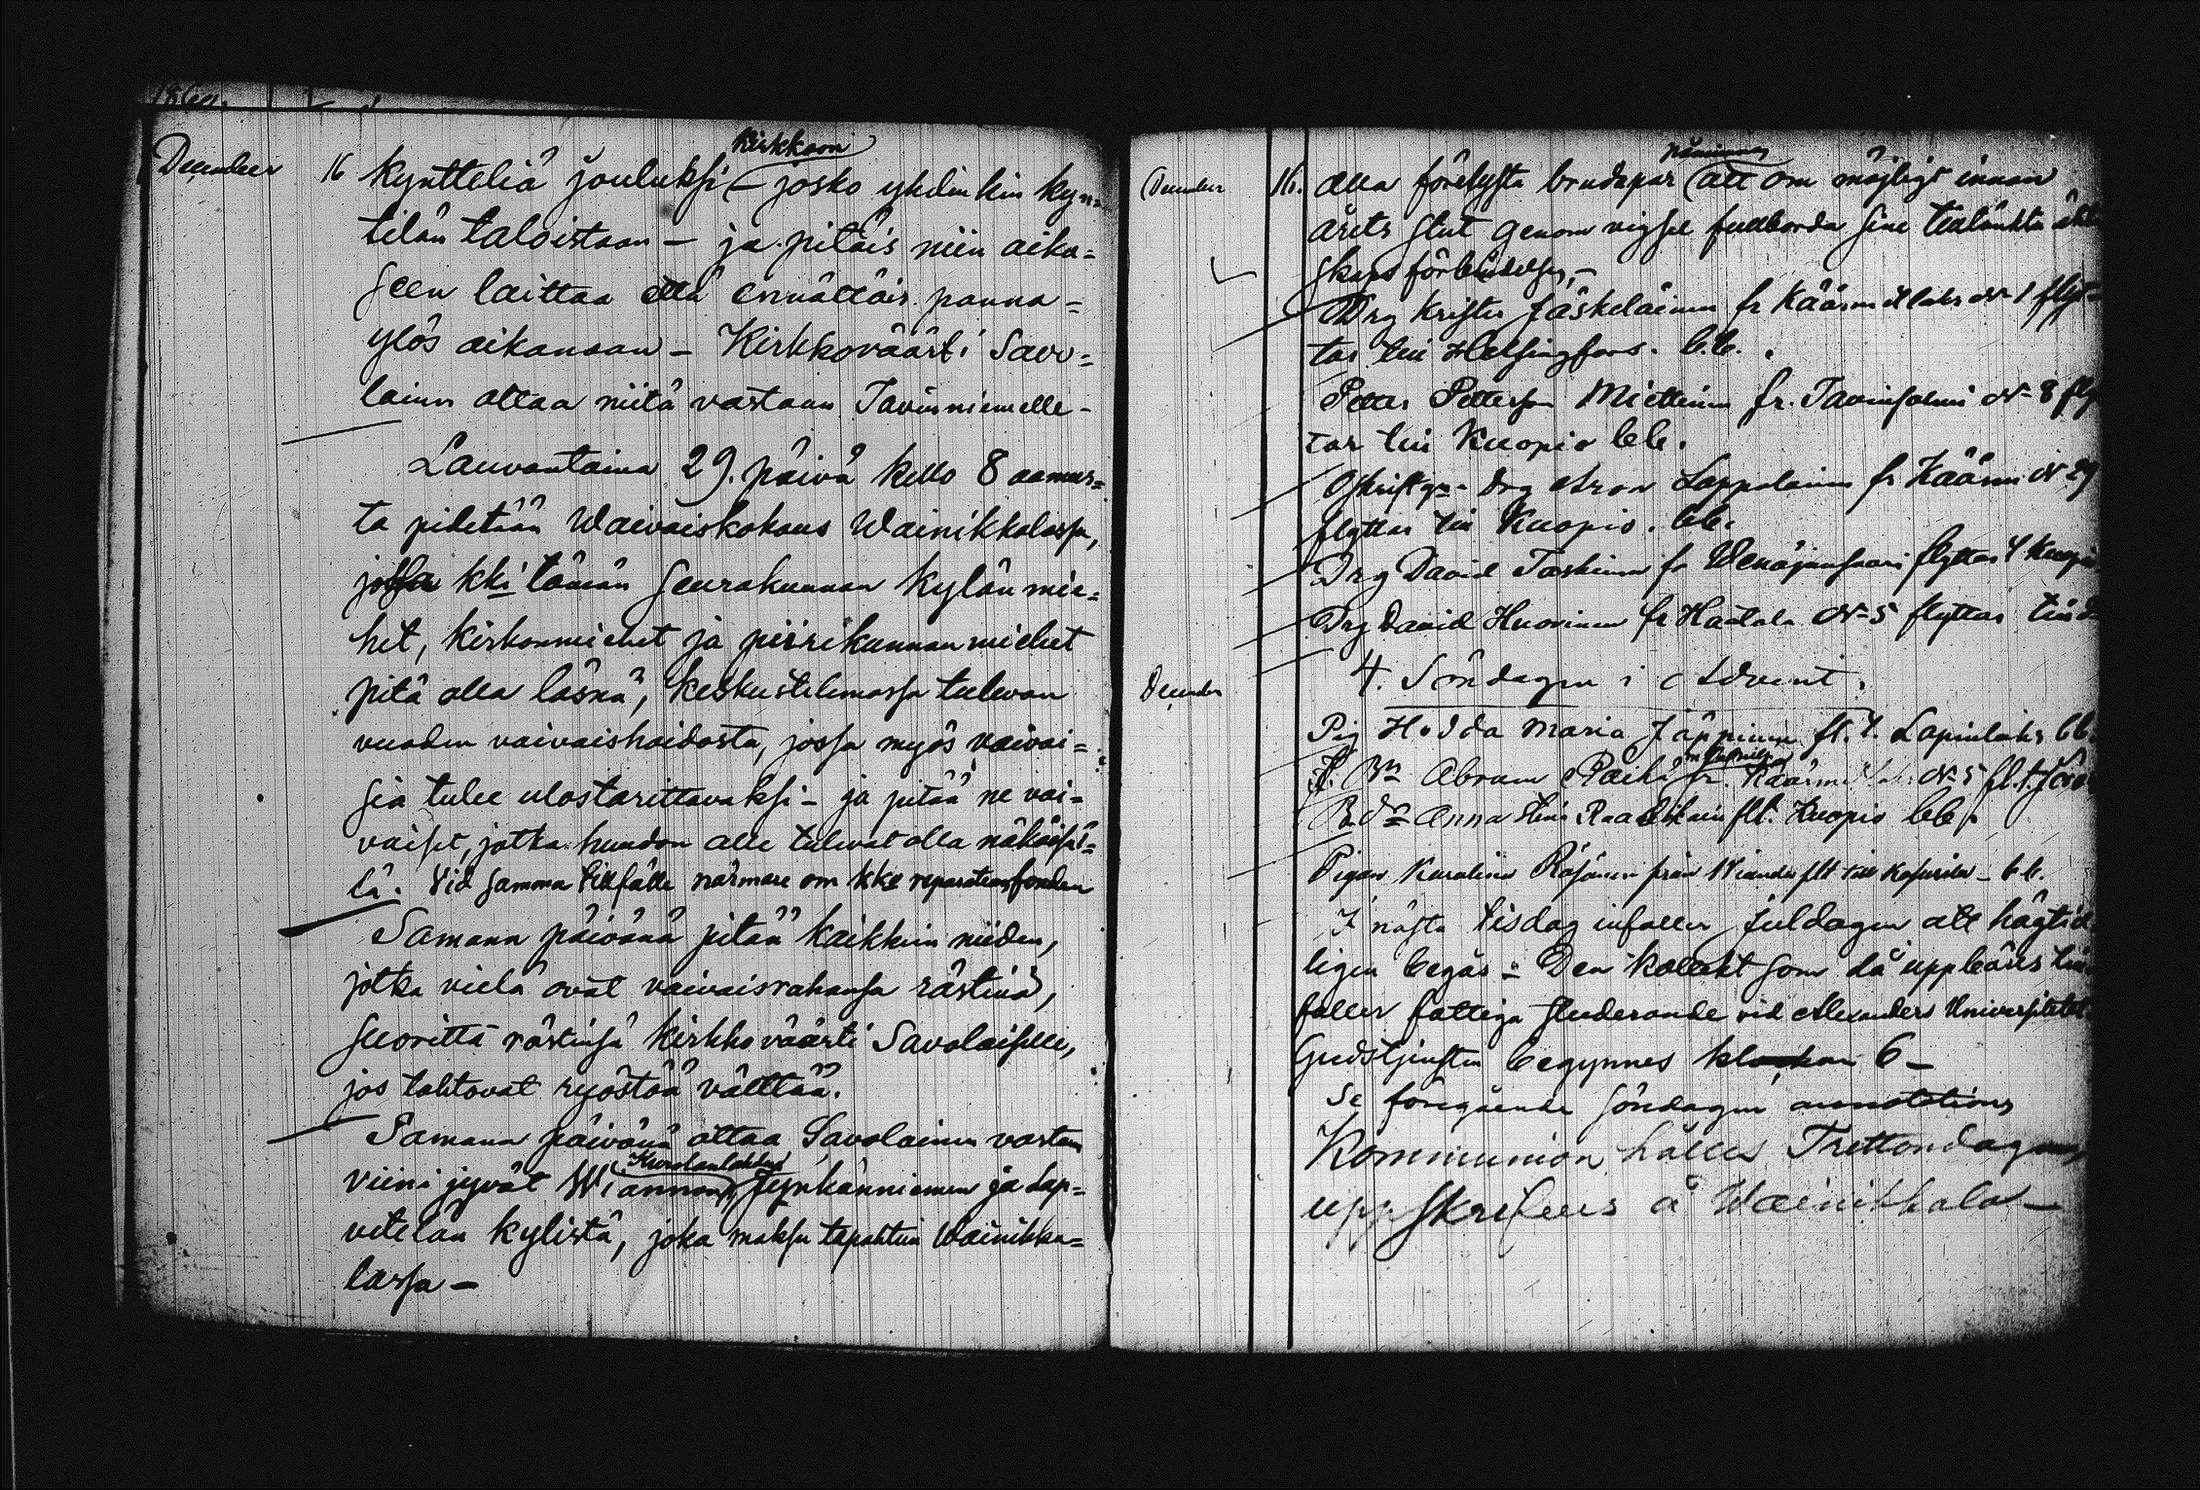 1860.
December 16 Kirkkoon
kynttelia jouluksi – josko yhdenkin kyn=
tilän taloistaan – ja pitäis niin aika=
seen laittaa että ennättäis panna=
ylös aikanaan – Kirkkoväärti Savo=
lainen ottaa niitä vastaan Tavinniemelle –
Lauvantaina 29. päivä kello 8 aamus=
ta pidetään Waivaiskokous Wainikkalassa,
jossa kki tämän Seurakunnan kylän mie=
het, kirkonmiehet ja piirikunnan miehet
pitä olla läsnä, keskustelemassa tulevan
vuoden vaivaishoidosta, jossa myös vaivai=
sia tulee ulostarittavaksi – ja pitää ne vai=
vaiset, jotka huudon alle tulevat olla näkösäl=
lä. Vid samma tillfälle närmare om kke reparationsfonden
Samana päivänä pitää kaikkiin niiden,
jotka vielä ovat vaivaisrahansa rästinä,
suoritta rästinsä kirkkoväärti Savolaiselle,
jos tahtovat ryöstöä välttää.
Samana päivänä ottaa Savolainen vastaan
viini jyvät Wiannon, Kurolanlahden Jynkänniemen ja Lap=
vetelän kylistä, joka maksu tapahtuu Wäinikka=
lassa –
December 16. Alla förelysta brudapar påminnes att om möjligt innan
årets slut genom vigsel fullborda sine tilltänkta äkten
skaps förbindelser, –
Drg Krister Jäskeläinen fr Käärmelaks N 1 flyt=
tar till Helsingfors. bb.
Petter Pettersson Miettinen fr. Tavinsalmi N 8 fly
tar till Kuopio bb.
Drg Aron Lappalainen fr Käärm N 29
flyttar till Kuopio. bb.
Drg David Toskinen fr Wenäjänsaari flyttar t Kuopio
Drg David Huovinen fr Haatala N 5 flyttar till
December 4. Söndagen i Advent.
Pig Hedda Maria Jäppinen fl. t. Lapinlaks bb.
Abram fr. Käärm N 5 fl. t.
Anna Raatikain flt. Kuopio bb.
Pigan Karolina Räsänen från Wianda flt till Kasurila – bb.
I nästa tisdag infaller Juldagen att högtid
ligen begås – Den kollekt som då uppbäres till
faller fattiga studerande vid Alexanders Universitetet.
Gudstjensten begynnes klockan 6 –
Se föregående söndagen annotations
Kommunion hålles Trettondagen
uppskrifves å Wäinikkala –